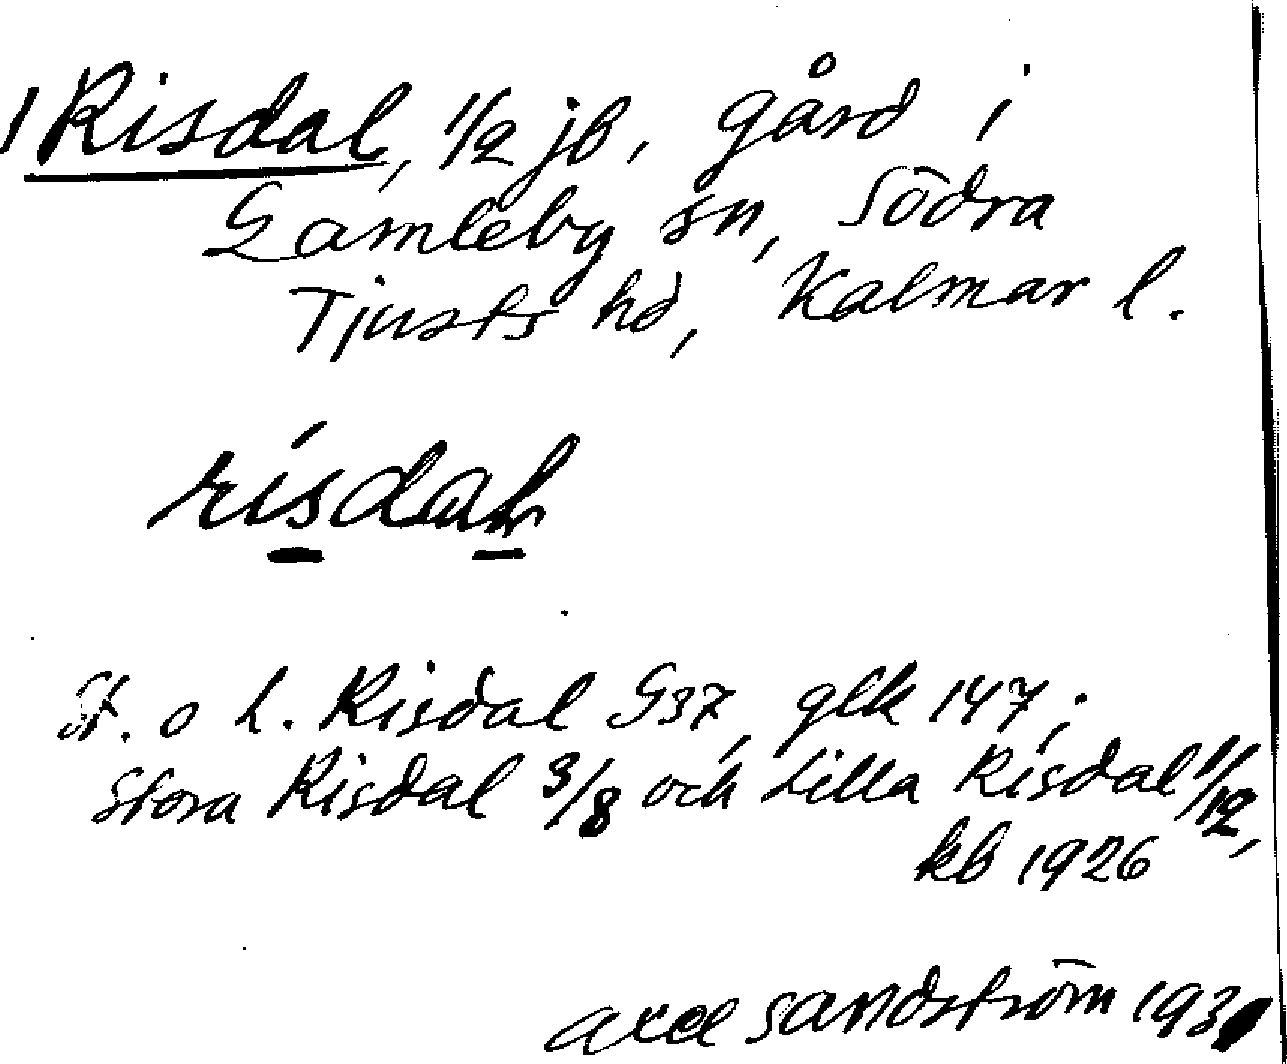 1 Risdal, 1/2 jb, gård i
Gamleby sn, Södra
Tjusts hd, Kalmar l.
St. o L. Risdal G37, glk 147;
Stora Risdal 3/8 och Lilla Risdal 1/12,
kb 1926
Axel Sandström